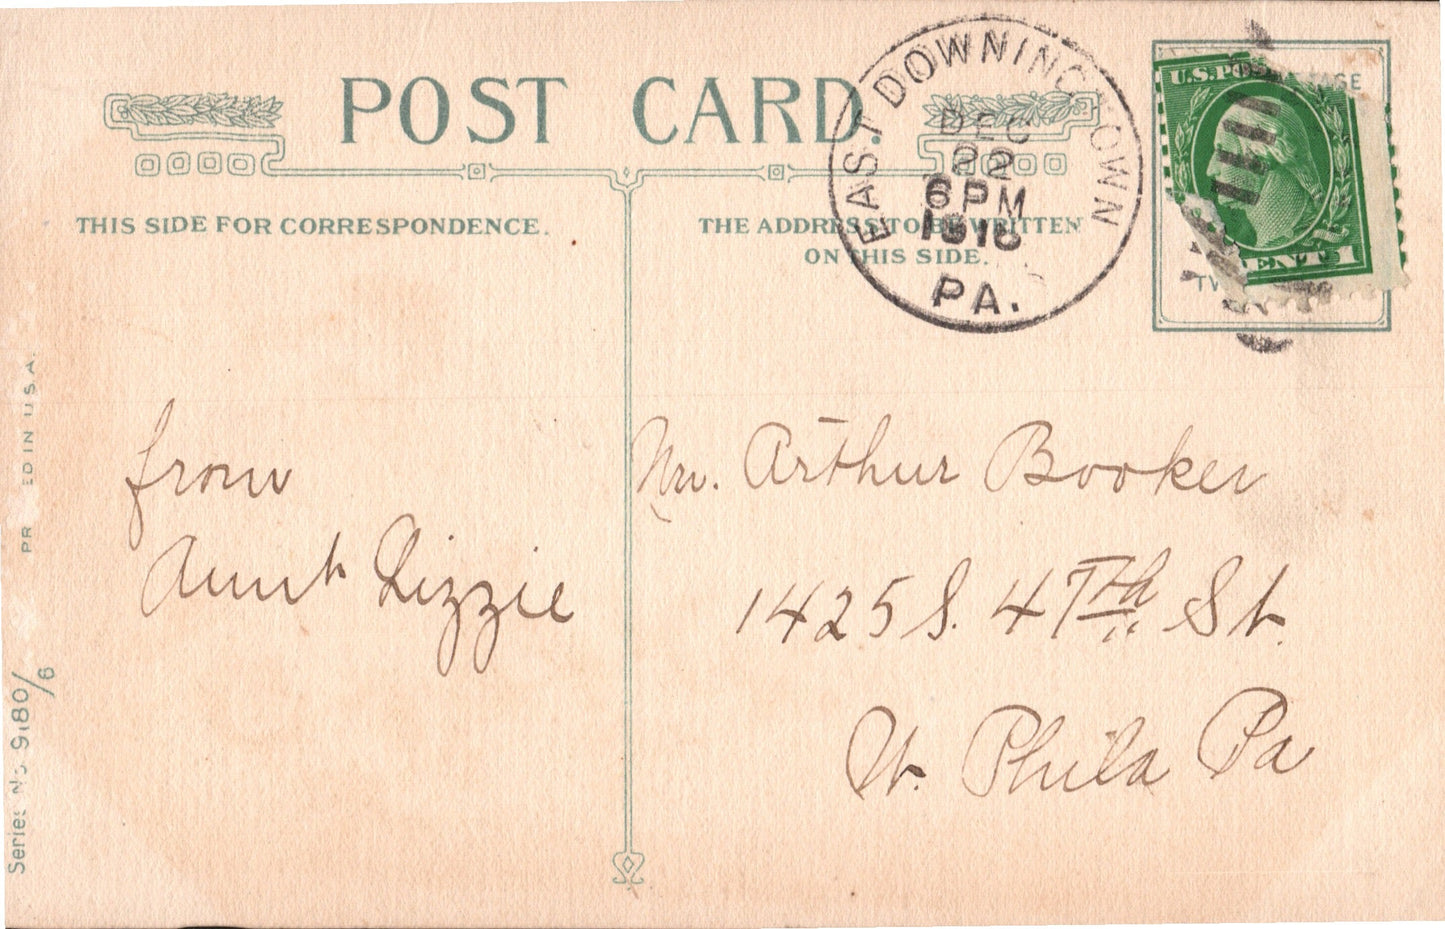 POST CARD.
THIS SIDE FOR CORRESPONDENCE.
THE ADDRESS TO BE WRITTEN
ON THIS SIDE.
EAST DOWNINGTOWN
DEC
22
6 PM
PA.
U.S.
CENT 1
from
Aunt Lizzie
Mr. Arthur Booker
1425 S. 4Th St.
W. Phila Pa
ED IN U.S.A.
Series No 9180/6